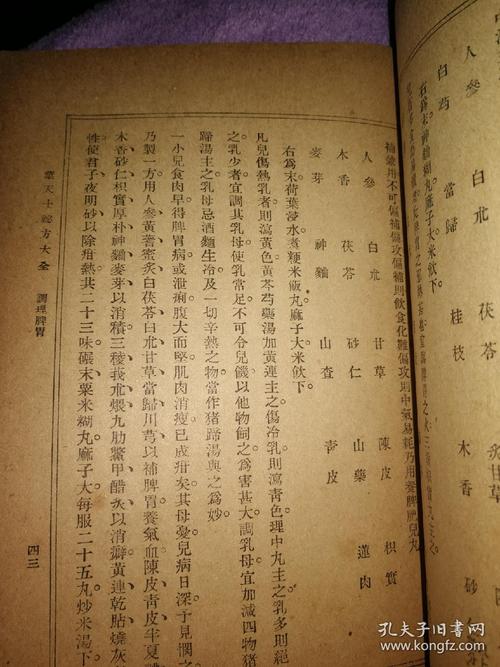 人參 白朮 茯苓 炙甘草
白芍 當歸 桂枝 木香 砂
右爲末神麯糊丸麻子大米飲下
補兼用不可偏補偏攻偏補則飲食化難偏攻則中氣易耗乃用養脾肥兒丸
人參 白朮 甘草 陳皮 枳實
木香 茯苓 砂仁 山藥 蓮肉
麥芽 神麯 山查 靑皮
右爲末荷葉浸水煮粳米飯丸麻子大米飲下
凡兒傷熱乳者則瀉黃色黃芩芍藥湯加黃連主之傷冷乳則瀉靑色理中丸主之乳多則絕
之乳少者宜調其乳母使乳常足不可令兒饑以他物飼之爲害甚大調乳母宜加減四物猪
蹄湯主之乳母忌酒麵生冷及一切辛熱之物當作猪蹄湯與之爲妙
一小兒食肉早得脾胃病或泄痢腹大而堅肌肉消瘦已成疳矣其母憂兒病日深予見憫之
乃製一方用人參黃蓍蜜炙白茯苓白朮甘草當歸川芎以補脾胃養氣血陳皮靑皮半夏
木香砂仁枳實厚朴神麯麥芽以消積三稜莪朮煨九肋鱉甲醋炙以消癖黃連乾蟾燒灰
性使君子夜明砂以除疳熱共二十三味碾末粟米糊丸麻子大每服二十五丸炒米湯下
葉天士祕方大全 調理脾胃 四三
孔夫子旧书网